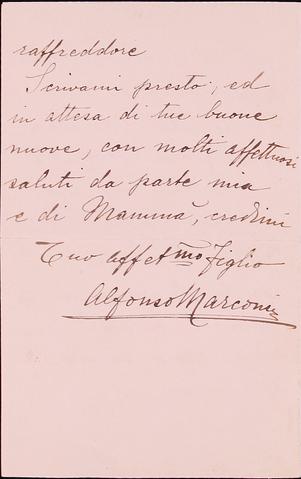 raffreddore
Scrivami presto, ed
in attesa di tue buone
nuove, con molti affettuosi
saluti da parte mia
e di Mammà, credimi
Tuo affetmo figlio
Alfonso Marconi